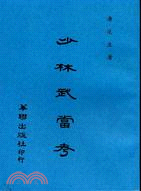 唐范生著
少林武當考
華聯出版社印行